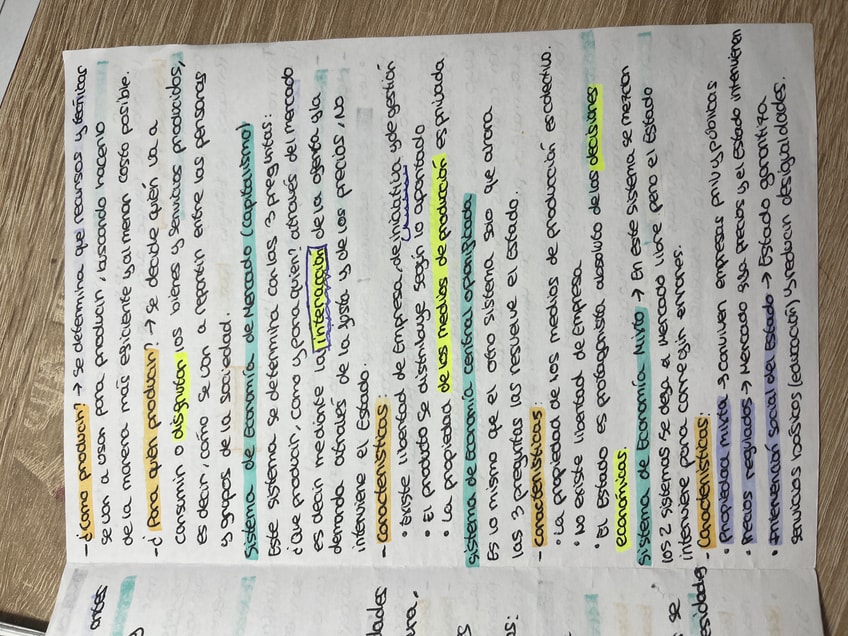 - ¿Como producir? → se determina que recursos y técnicas
se van a usar para producir, buscando hacerlo
de la manera más eficiente y al menor costo posible.
- ¿Para quién producir? → se decide quién va a
consumir o disfrutar los bienes y servicios producidos,
es decir, cómo se van a repartir entre las personas
y grupos de la sociedad.
Sistema de Economía de Mercado (capitalismo)
Este sistema se determina con las 3 preguntas:
¿Que producir, como y para quién? através del mercado
es decir mediante la interacción de la oferta y la
demanda através de la y de los precios, No
interviene el Estado.
- Características:
• Existe libertad de Empresa, de iniciativa y de gestión
• El producto se distribuye según lo aportado
• La propiedad de los medios de producción es privada.
Sistema de Economía central o planificada
Es lo mismo que el otro sistema solo que ahora
las 3 preguntas las resuelve el Estado.
- Características:
• La propiedad de los medios de producción es colectivo.
• No existe libertad de Empresa
• El Estado es protagonista absoluto de las decisiones
económicas.
Sistema de Economía Mixto → En este sistema se mezclan
los 2 sistemas se deja al Mercado libre pero el Estado
interviene para corregir errores.
- Características:
• Propiedad mixta → conviven empresas priv y públicas
• Precios regulados → Mercado fija precios y el Estado intervienen
• Intervención social del Estado → Estado garantiza
servicios básicos (educación) y reducir desigualdades.